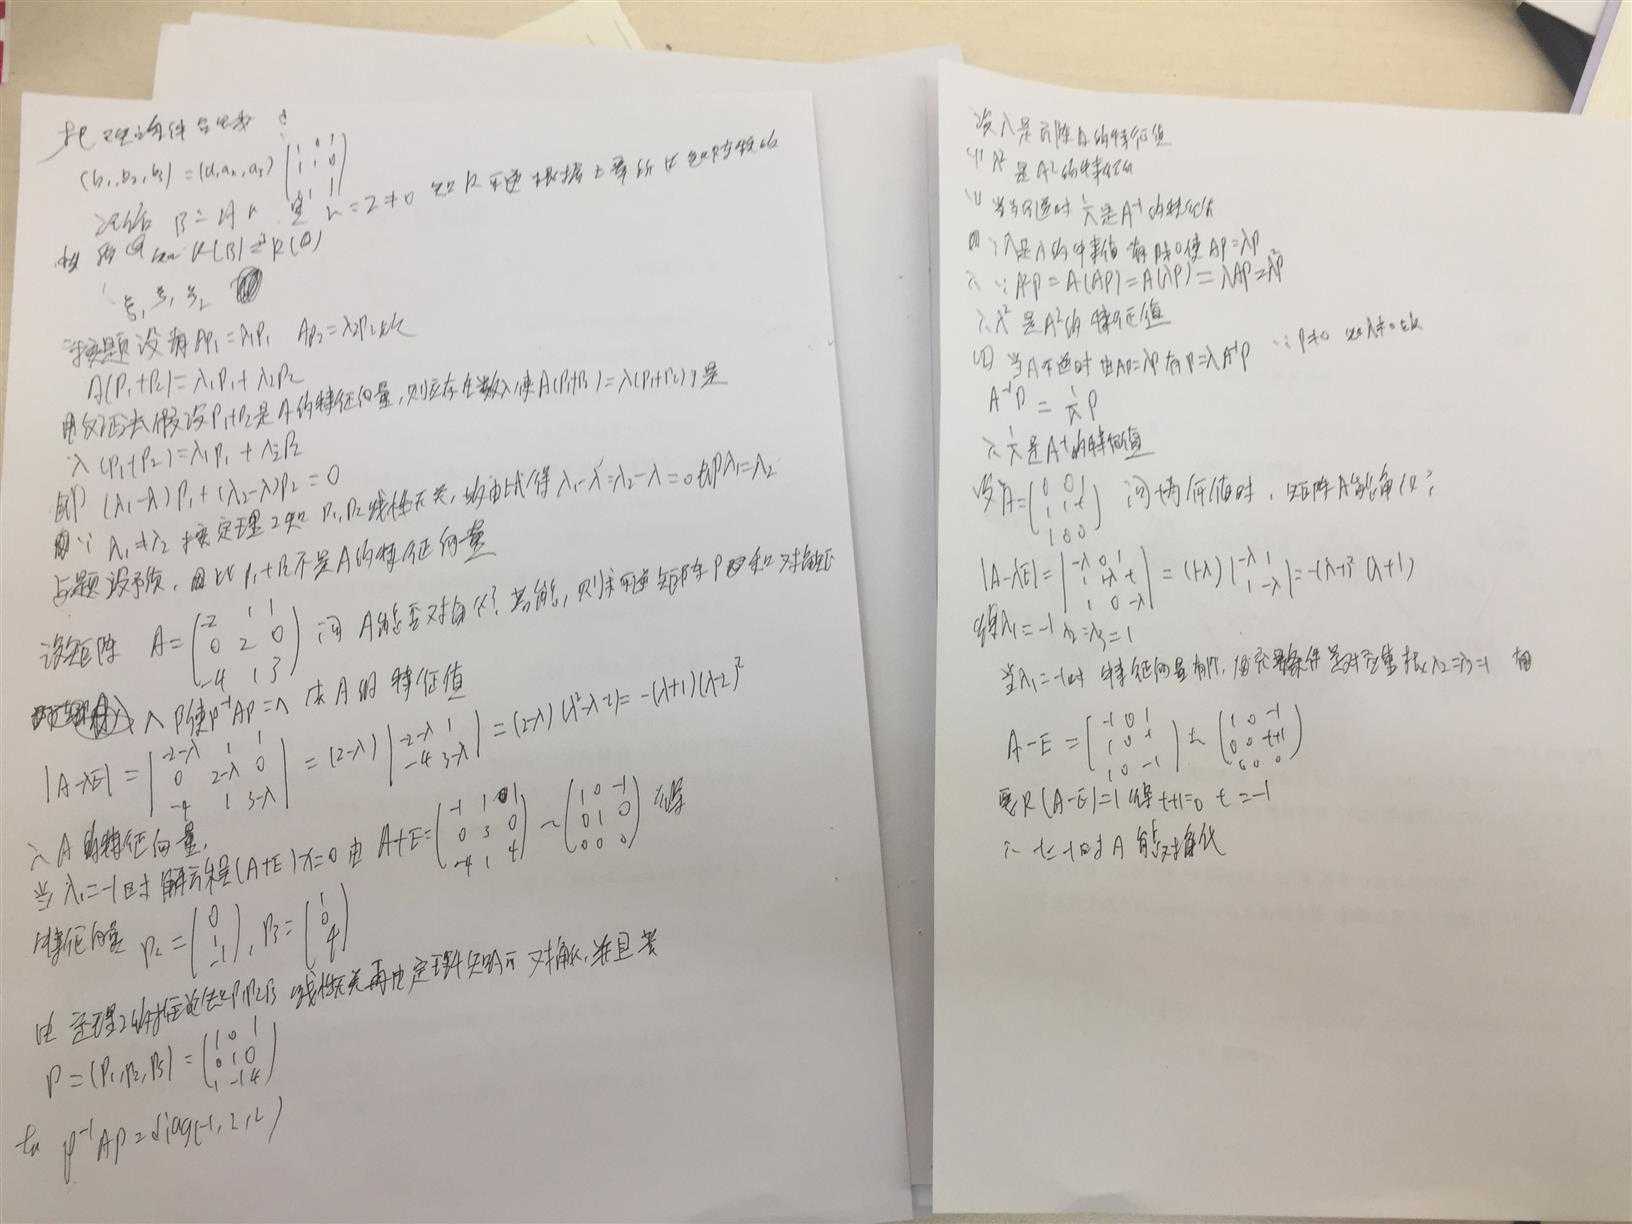 把
(b₁,b₂,b₃)=(a₁,a₂,a₃) (1 0 1
1 1 0
0 1 1)
记为 B=AK |K|=2≠0 知 K 可逆 根据
R(B)=R(A)
ξ, ξ₁ ξ₂
按题设有 Ap₁=λ₁p₁ Ap₂=λ₂p₂ 故
A(p₁+p₂)=λ₁p₁+λ₂p₂
用反证法 假设p₁+p₂是A的特征向量,则应存在数λ使A(p₁+p₂)=λ(p₁+p₂)于是
λ(p₁+p₂)=λ₁p₁+λ₂p₂
即 (λ₁-λ)p₁+(λ₂-λ)p₂=0
∵ λ₁≠λ₂ 按定理2知 p₁,p₂线性无关,故由上式得 λ₁-λ=λ₂-λ=0 即λ₁=λ₂
与题设矛盾,因此p₁+p₂不是A的特征向量
设矩阵 A=(-2 1 1
0 2 0
-4 1 3) 问A能否对角化?若能,则求可逆矩阵P和对角矩阵
λ P使P⁻¹AP=Λ 求A的特征值
|A-λE|=|-2-λ 1 1
0 2-λ 0
-4 1 3-λ| =(2-λ)|-2-λ 1
-4 3-λ| =(2-λ)(λ²-λ-2)=-(λ+1)(λ-2)²
A的特征向量.
当λ₁=-1时 解方程(A+E)x=0 由 A+E=(-1 1 1
0 3 0
-4 1 4)~(1 0 -1
0 1 0
0 0 0) 得
特征向量 p₂=(0
1
-1), p₃=(1
0
4)
由定理2的推论知p₁p₂p₃线性无关再由定理4知A可对角化,并且若
P=(p₁,p₂,p₃)=(1 0 1
0 1 0
1 -1 4)
P⁻¹AP=diag(-1,2,2)
设λ是方阵A的特征值
λ²是A²的特征值
当A可逆时 1/λ是A⁻¹的特征值
∵λ是A的特征值 有p≠0使Ap=λp
∵A²p=A(Ap)=A(λp)=λAp=λ²p
∴λ²是A²的特征值
当A可逆时由Ap=λp有p=λA⁻¹p ∵p≠0 知λ≠0 故
A⁻¹p=1/λ p
∴1/λ是A⁻¹的特征值
设A=(0 0 1
1 1 t
1 0 0) 问t为何值时,矩阵A能对角化?
|A-λE|=|-λ 0 1
1 1-λ t
1 0 -λ| =(1-λ)|-λ 1
1 -λ| =-(λ-1)²(λ+1)
得λ₁=-1 λ₂=λ₃=1
当λ₁=-1时 特征向量 条件是对应重根λ₂=λ₃=1
A-E=(-1 0 1
1 0 t
1 0 -1)~(1 0 -1
0 0 t+1
0 0 0)
要R(A-E)=1 得t+1=0 t=-1
∴ t=-1时A能对角化